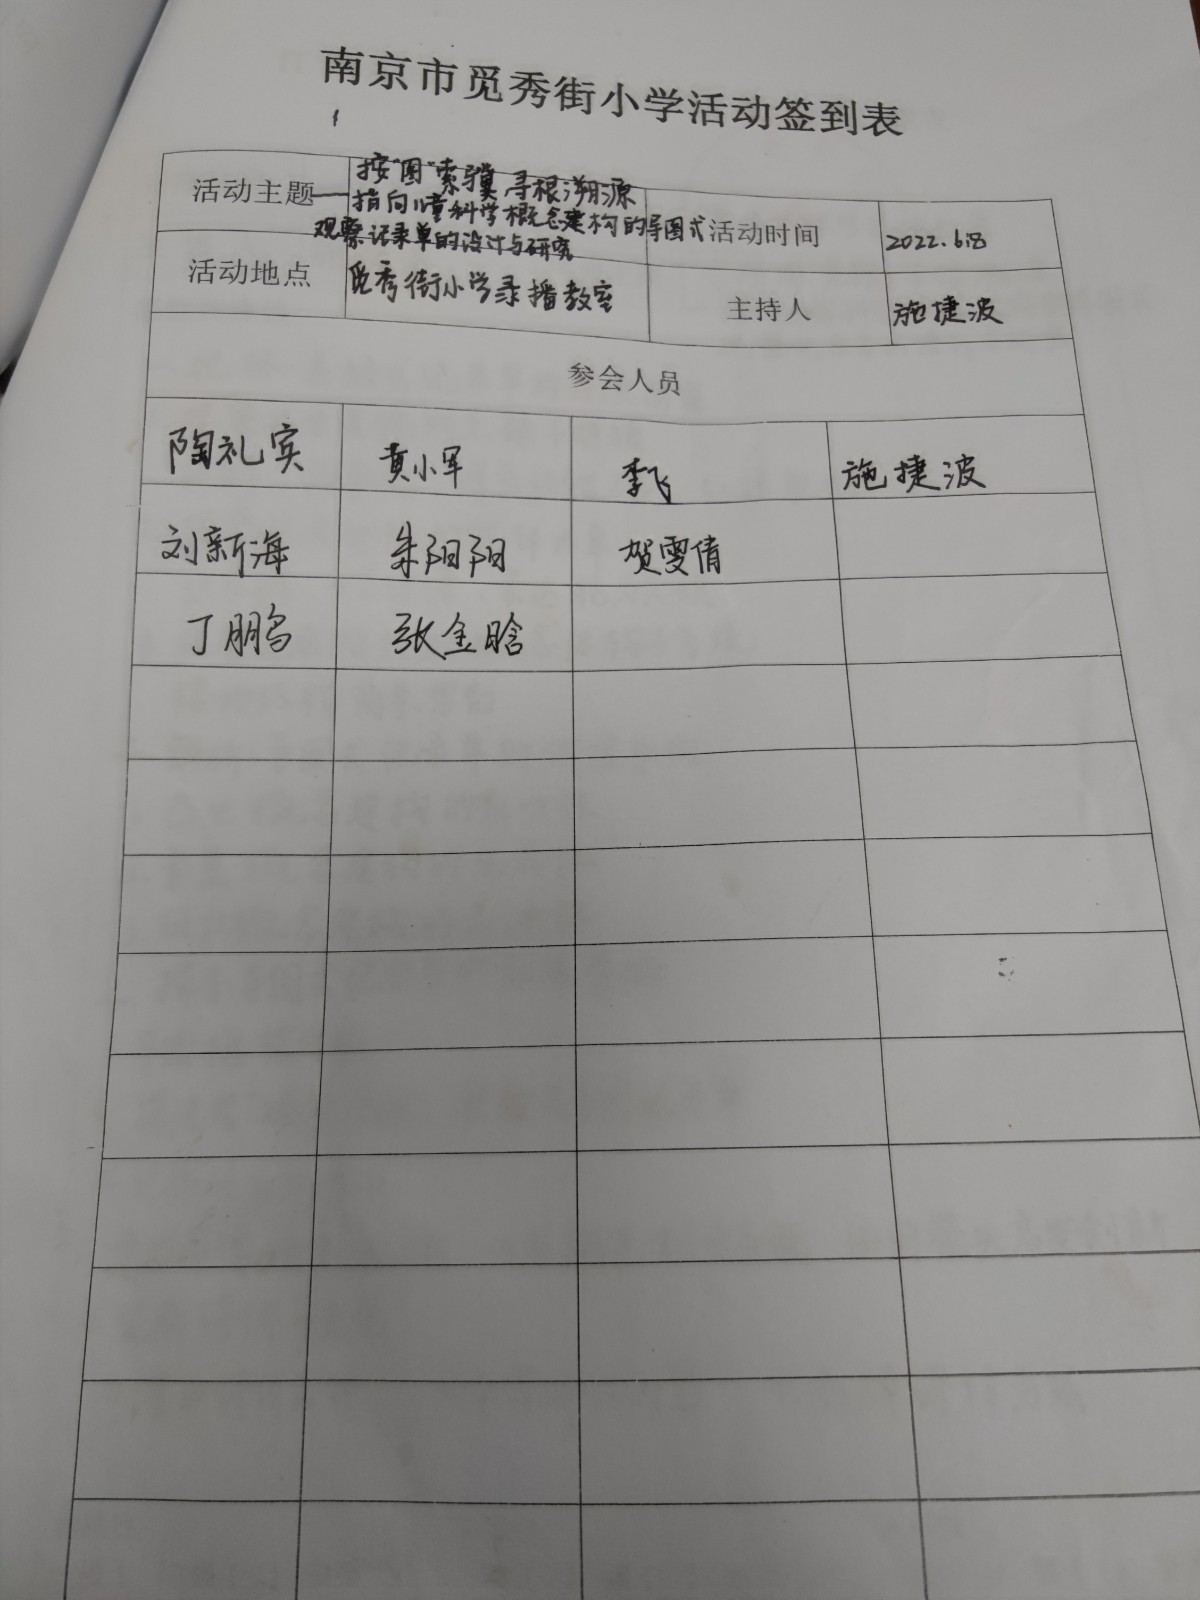 南京市觅秀街小学活动签到表
活动主题
按"图"索骥 寻根溯源
——指向儿童科学概念建构的导图式
观察记录单的设计与研究
活动时间
2022.6.8
活动地点
觅秀街小学录播教室
主持人
施捷波
参会人员
陶礼宾 黄小军 李飞 施捷波
刘新海 朱阳阳 贺雯倩
丁鹏 张金晗